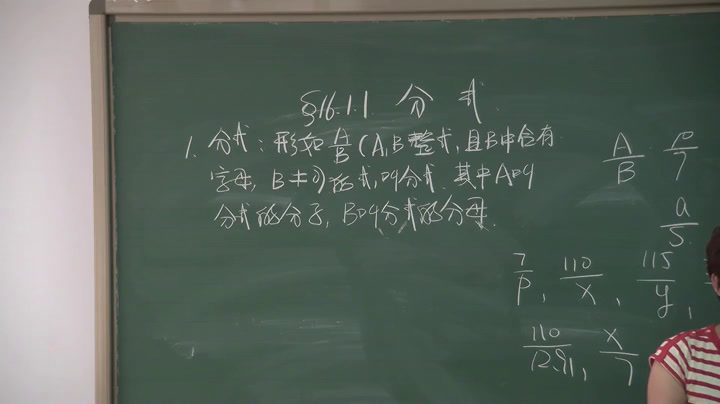 §16.1.1 分式
1. 分式：形如 A/B (A,B整式,且B中含有
字母, B≠0)的式,叫分式. 其中A叫
分式的分子, B叫分式的分母.
A/B 10/7
a/5
7/p, 110/x, 115/y,
x/7